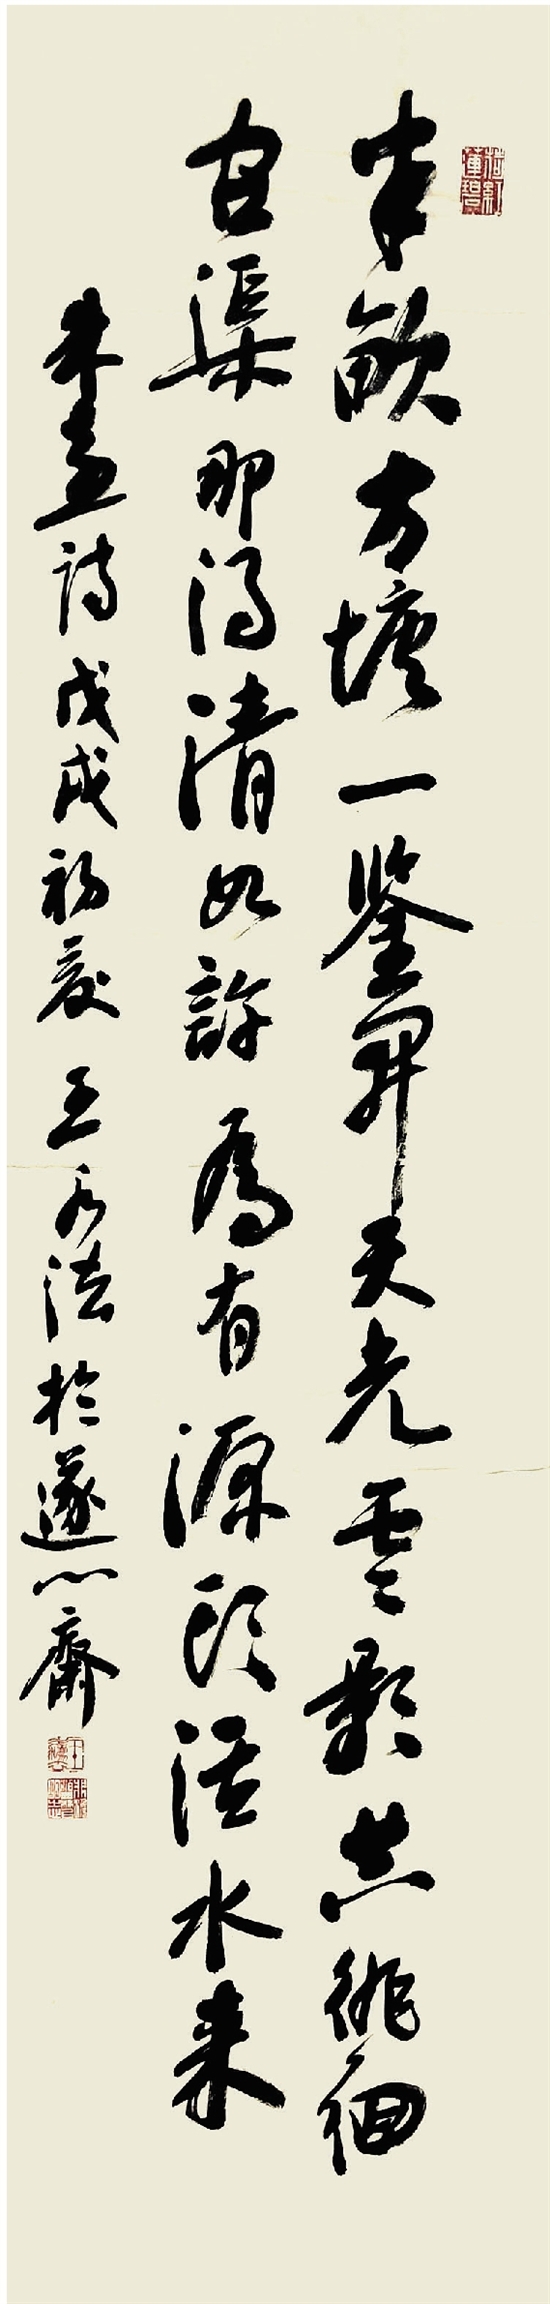 半畝方塘一鑒開天光雲影共徘徊
問渠那得清如許為有源頭活水来
朱熹詩戊戌初夏王法於遂心齋